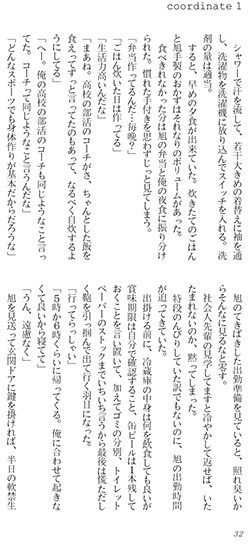 coordinate 1
　シャワーで汗を流して、若干大きめの着替えに袖を通
し、洗濯物を洗濯機に放り込んでスイッチを入れる。洗
剤の量は適当。
　すると、早めの夕食が出来ていた。炊きたてのごはん
と旭手製のおかずはそれなりのボリュームがあった。
　食べきれなかった分は旭の弁当と俺の夜食に振り分け
られた。慣れた手付きを思わずじっと見てしまう。
「弁当作ってるんだ…毎晩？」
「ごはん炊いた日は作ってる」
「生活力高いんだな」
「まあね。高校の部活のコーチがさ、ちゃんとした飯を
食えってずっと言ってたのもあって、なるべく自炊するよ
うにしてる」
「へー。俺の高校の部活のコーチも同じようなこと言っ
てた。コーチって同じようなこと言うんだな」
「どんなスポーツでも身体作りが基本だからだろうな」
　旭のてきぱきした出勤準備を見ていると、照れ臭いか
らそんなに見るなと零す。
　社会人先輩の見学してますと冷やかして返せば、いた
たまれないのか、黙ってしまった。
　特段のんびりしていた訳でもないのに、旭の出勤時間
が迫ってきていた。
　出掛ける前に、冷蔵庫の中身は何を飲食しても良いが
賞味期限は自分で確認すること、缶ビールは１本残して
おくことを言い置いて、加えてゴミの分別、トイレット
ペーパーのストックまでいちいち言うから最後は慌ただし
く鞄を引っ掴んで出て行く羽目になった。
「行ってらっしゃい」
「５時か６時くらいに帰ってくる。俺に合わせて起きな
くて良いから寝てて」
「うん、遠慮なく」
　旭を見送って玄関ドアに鍵を掛ければ、半日の軟禁生
32